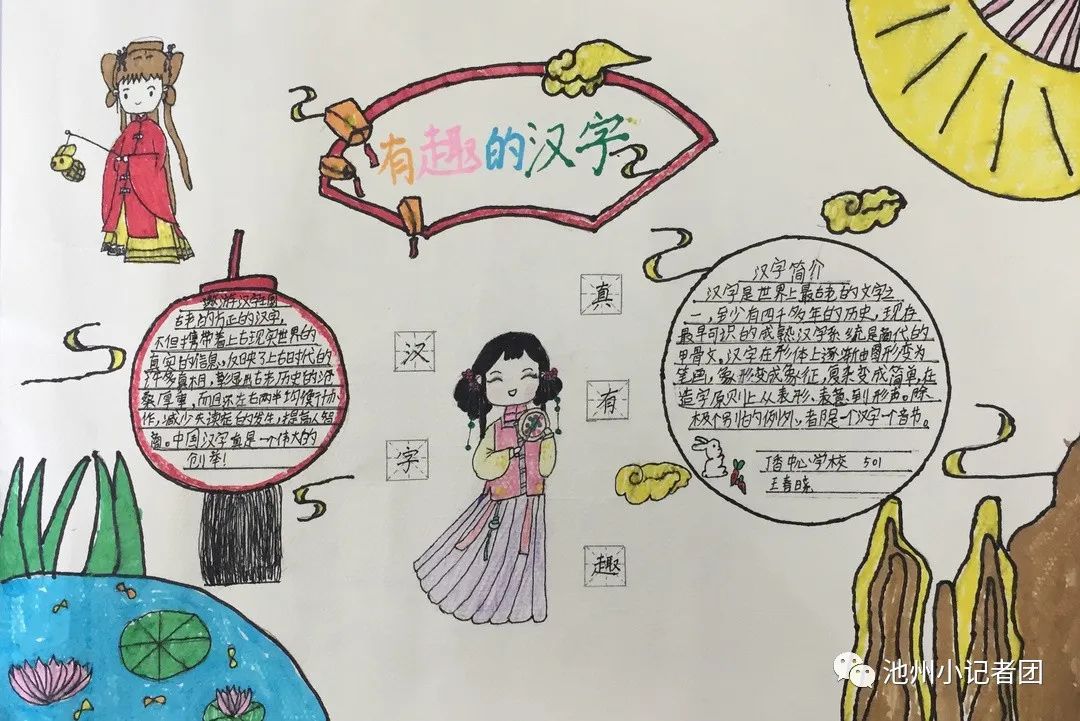 有趣的汉字
遨游汉字王国
古老的方正的汉字,
不但携带着上古现实世界的
真实的信息,反映了上古时代的
真相,彰显出古老历史的沧
桑厚重,而且还左右两半均衡
作,减少失读症的发生,提高人智
商。中国汉字真是一个伟大的
创举!
汉
字
真
有
趣
汉字简介
汉字是世界上最古老的文字之
一,至少有四千多年的历史,现存
最早可识的成熟汉字系统是商代的
甲骨文。汉字在形体上逐渐由图形变为
笔画,象形变成象征,复杂变成简单,在
造字原则上从表形、表意到形声。除
极个别的例外,都是一个汉字一个音节。
中心学校 501
王春晓
池州小记者团